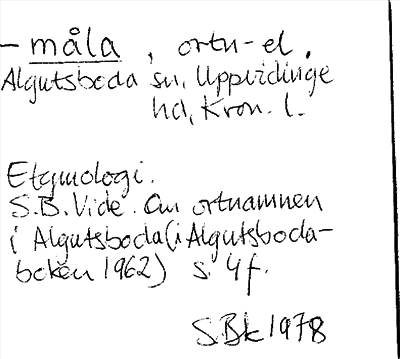 - måla, ortn-el.
Algutsboda sn, Uppvidinge
hd, Kron. l.
Etymologi.
S.B. Vide. Om ortnamnen
i Algutsboda (i Algutsboda-
boken 1962) s. 4f.
SBk 1978